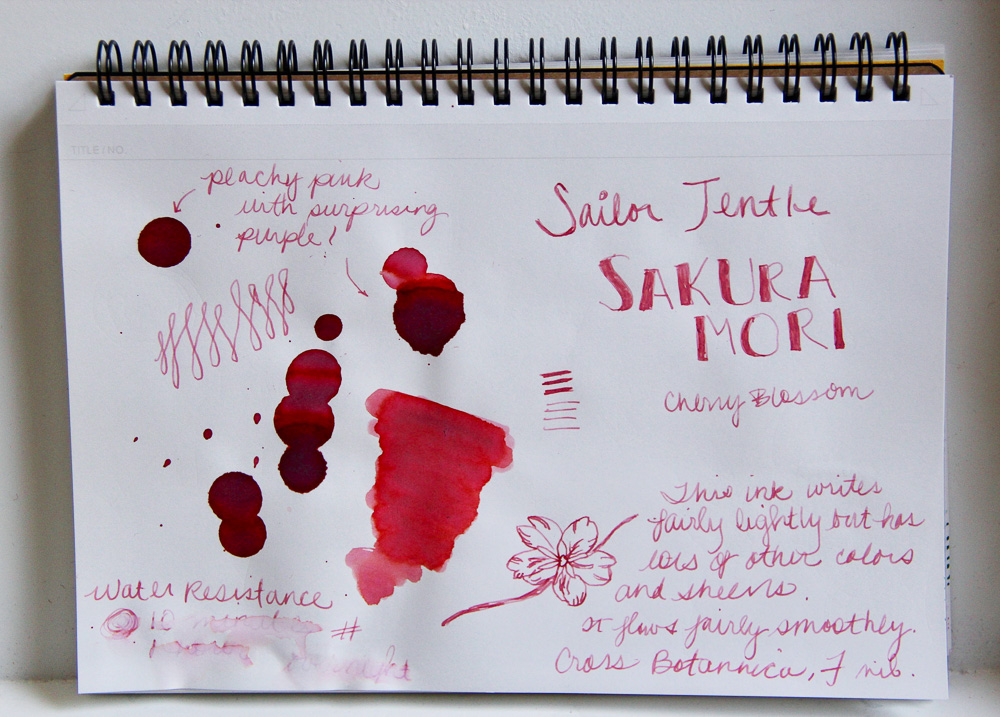 TITLE / NO.
peachy pink
with surprising
purple!
Sailor Jentle
SAKURA
MORI
Cherry Blossom
This ink writes
fairly lightly but has
lots of other colors
and sheens.
It flows fairly smoothley.
Cross Botannica, F nib.
Water Resistance
10
#